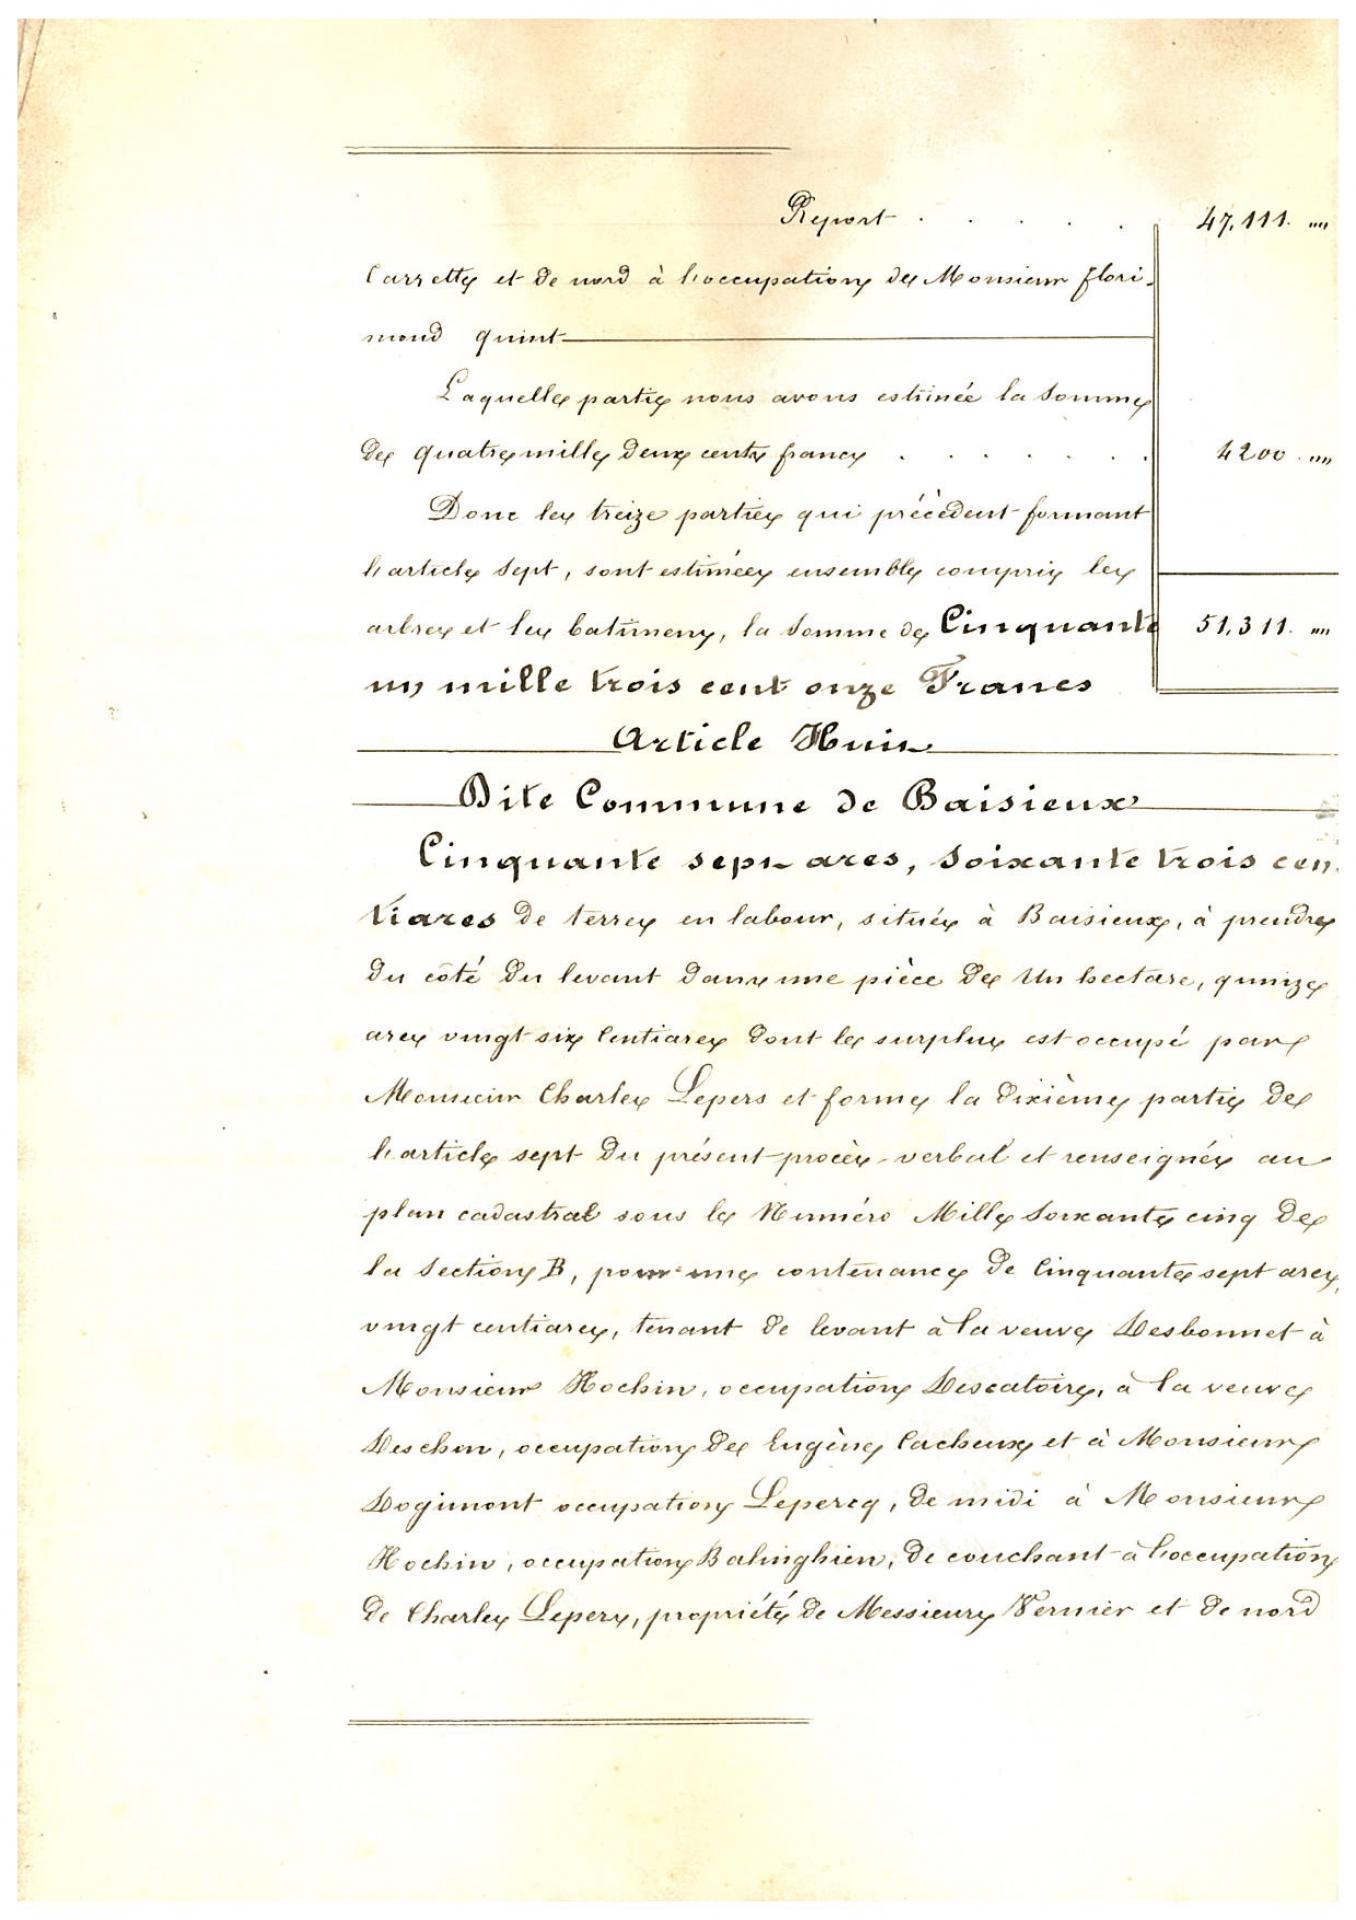 Report . . . . . 47,111. "''
Carrette et de nord à l'occupation de Monsieur flori-
mond quint
Laquelle partie nous avons estimée la somme
de quatre mille deux cents francs . . . . . . . 4200. "''
Donc les treize parties qui précèdent formant
l'article sept, sont estimées ensemble compris les
arbres et les batimens, la somme de Cinquante 51,311. "''
un mille trois cent onze Francs
Article Huit
Dite Commune de Baisieux
Cinquante sept ares, Soixante trois cen-
tiares de terre en labour, située à Baisieux, à prendre
du côté du levant dans une pièce de Un hectare, quinze
ares vingt six Centiares dont le surplus est occupé par
Monsieur Charles Lepers et forme la dixième partie de
l'article sept du présent procès-verbal et renseignée au
plan cadastral sous le Numéro Mille Soixante cinq de
la Section B, pour une contenance de Cinquante sept ares,
vingt centiares, tenant de levant à la veuve Desbonnet à
Monsieur Hochin, occupation Descatoire, à la veuve
Deschen, occupation de Eugène Cacheux et à Monsieur
Dogimont occupation Lepercq, de midi à Monsieur
Hochin, occupation Balinghien, de couchant à l'occupation
de Charles Lepers, propriété de Messieurs Vernier et de nord